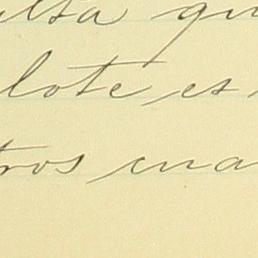 ulta qu
lote es
tros cua